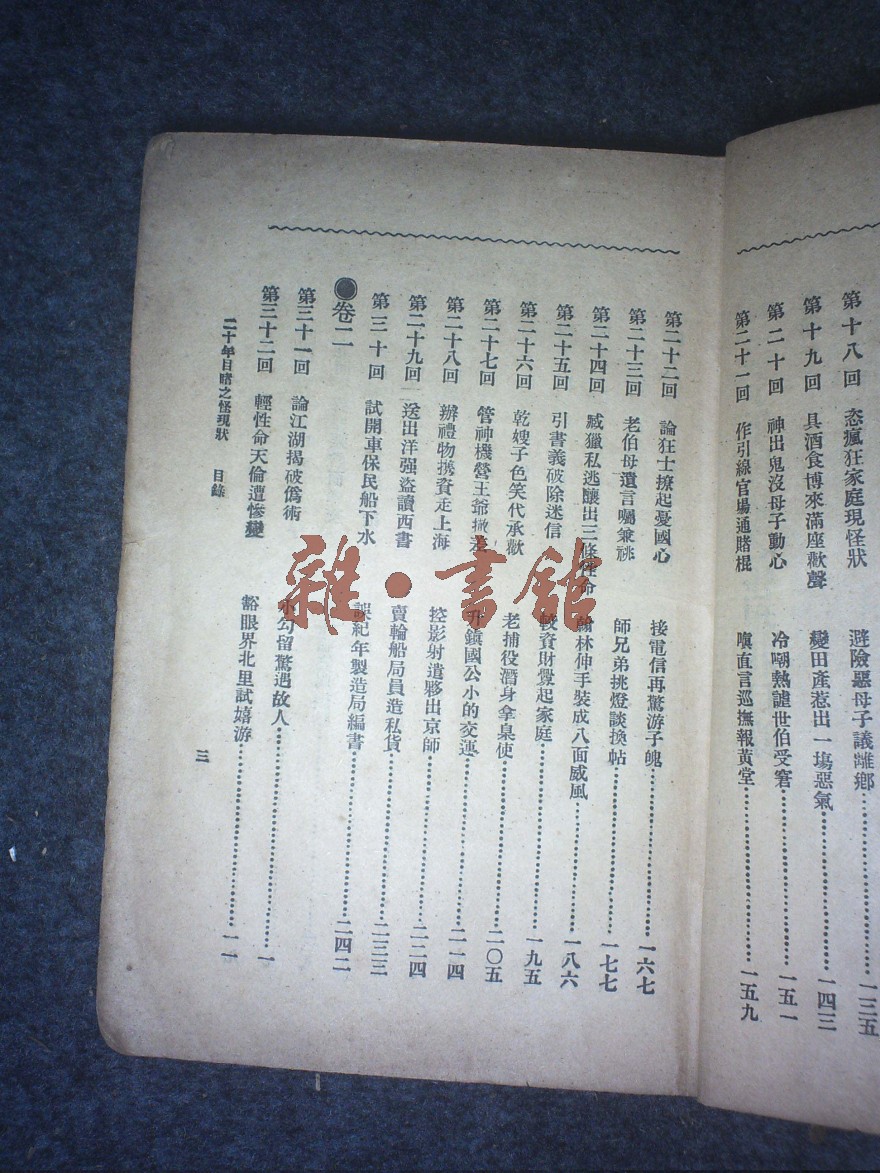 第十八回 恣瘋狂家庭現怪狀 避險惡母子議離鄉 一三五
第十九回 具酒食博來滿座歡聲 變田產惹出一塲惡氣 一四三
第二十回 神出鬼沒母子動心 冷嘲熱謔世伯受窘 一五一
第二十一回 作引線官場通賭棍 嗔直言巡撫報黃堂 一五九
第二十二回 論狂士撩起憂國心 接電信再驚游子魄 一六七
第二十三回 老伯母遺言囑兼祧 師兄弟挑燈談換帖 一七七
第二十四回 臧獲私逃釀出三條性命 翰林伸手裝成八面威風 一八六
第二十五回 引書義破除迷信 較資財釁起家庭 一九五
第二十六回 乾嫂子色笑代承歡 老捕役潛身拿臬使 二〇五
第二十七回 管神機營王爺撤差 升鎮國公小的交運 二一四
第二十八回 辦禮物携資走上海 控影射遣夥出京師 二二四
第二十九回 送出洋强盜讀西書 賣輪船局員造私貨 二三三
第三十回 試開車保民船下水 誤紀年製造局編書 二四二
●卷二
第三十一回 論江湖揭破僞術 小勾留驚遇故人 一
第三十二回 輕性命天倫遭慘變 豁眼界北里試嬉游 一一
二十年目睹之怪現狀 目錄 三
雜·書館